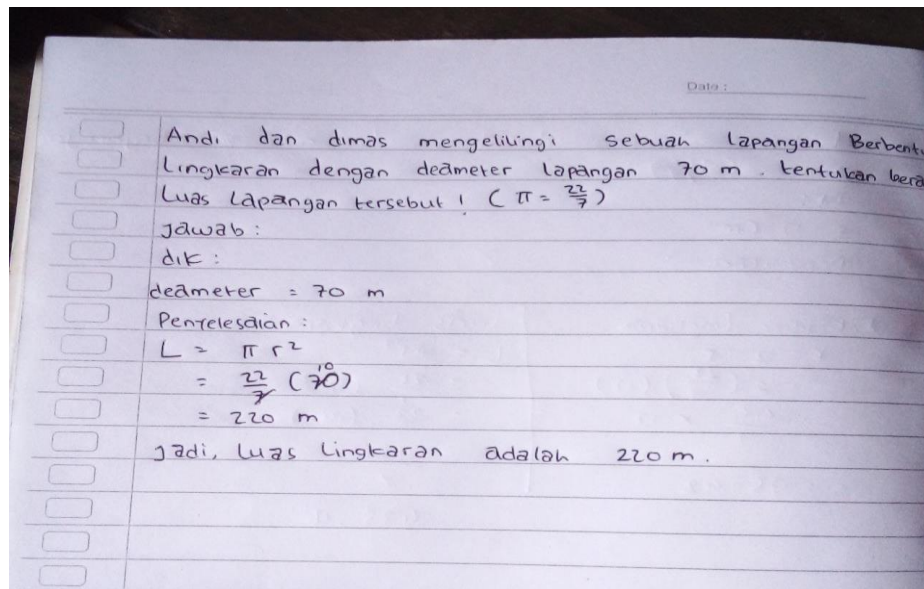 Date :
Andi dan dimas mengelilingi sebuah lapangan Berbent
Lingkaran dengan deameter lapangan 70 m. tentukan bera
Luas Lapangan tersebut ! ( π = 22/7 )
Jawab :
dik :
deameter = 70 m
Penyelesaian :
L = π r²
= 22/7 (70) 10
= 220 m
Jadi, Luas Lingkaran adalah 220 m.